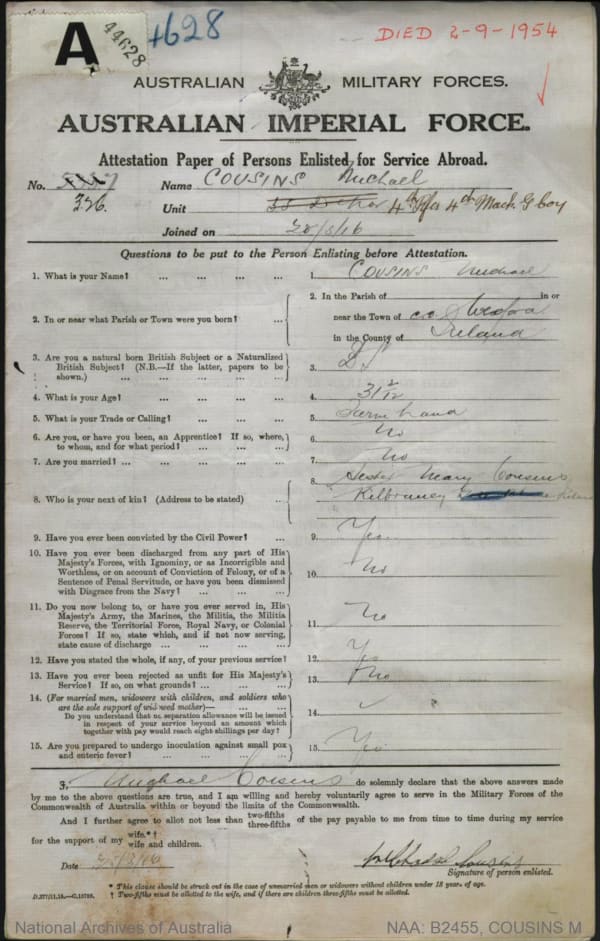 A
44628
4628
DIED 2-9-1954
AUSTRALIAN MILITARY FORCES.
AUSTRALIAN IMPERIAL FORCE.
Attestation Paper of Persons Enlisted for Service Abroad.
No. Name COUSINS Michael
326. Unit 4th Mach G Coy
Joined on
Questions to be put to the Person Enlisting before Attestation.
1. What is your Name? ... ... ... ... 1. COUSINS Michael
2. In or near what Parish or Town were you born? ... 2. In the Parish of in or
near the Town of
in the County of Ireland
3. Are you a natural born British Subject or a Naturalized
British Subject? (N.B.—If the latter, papers to be
shown.) ... ... ... ... ... 3.
4. What is your Age? ... ... ... ... 4. 31 2/12
5. What is your Trade or Calling? ... ... ... 5.
6. Are you, or have you been, an Apprentice? If so, where,
to whom, and for what period? ... ... ... 6. No
7. Are you married? ... ... ... ... ... 7. No
8. Who is your next of kin? (Address to be stated) ... 8. Sister Mary Cousins
9. Have you ever been convicted by the Civil Power? ... 9. Yes
10. Have you ever been discharged from any part of His
Majesty's Forces, with Ignominy, or as Incorrigible and
Worthless, or on account of Conviction of Felony, or of a
Sentence of Penal Servitude, or have you been dismissed
with Disgrace from the Navy? ... ... ... 10. No
11. Do you now belong to, or have you ever served in, His
Majesty's Army, the Marines, the Militia, the Militia
Reserve, the Territorial Force, Royal Navy, or Colonial
Forces? If so, state which, and if not now serving,
state cause of discharge ... ... ... ... 11. No
12. Have you stated the whole, if any, of your previous service? 12.
13. Have you ever been rejected as unfit for His Majesty's
Service? If so, on what grounds? ... ... ... 13. No
14. (For married men, widowers with children, and soldiers who
are the sole support of widowed mother)—
Do you understand that no separation allowance will be issued
in respect of your service beyond an amount which
together with pay would reach eight shillings per day? 14.
15. Are you prepared to undergo inoculation against small pox
and enteric fever? ... ... ... ... 15. Yes
I, Michael Cousins do solemnly declare that the above answers made
by me to the above questions are true, and I am willing and hereby voluntarily agree to serve in the Military Forces of the
Commonwealth of Australia within or beyond the limits of the Commonwealth.
And I further agree to allot not less than two-fifths three-fifths of the pay payable to me from time to time during my service
for the support of my wife.*† wife and children.
Date Michael Cousins
Signature of person enlisted.
* This clause should be struck out in the case of unmarried men or widowers without children under 18 years of age.
† Two-fifths must be allotted to the wife, and if there are children three-fifths must be allotted.
National Archives of Australia NAA: B2455, COUSINS M